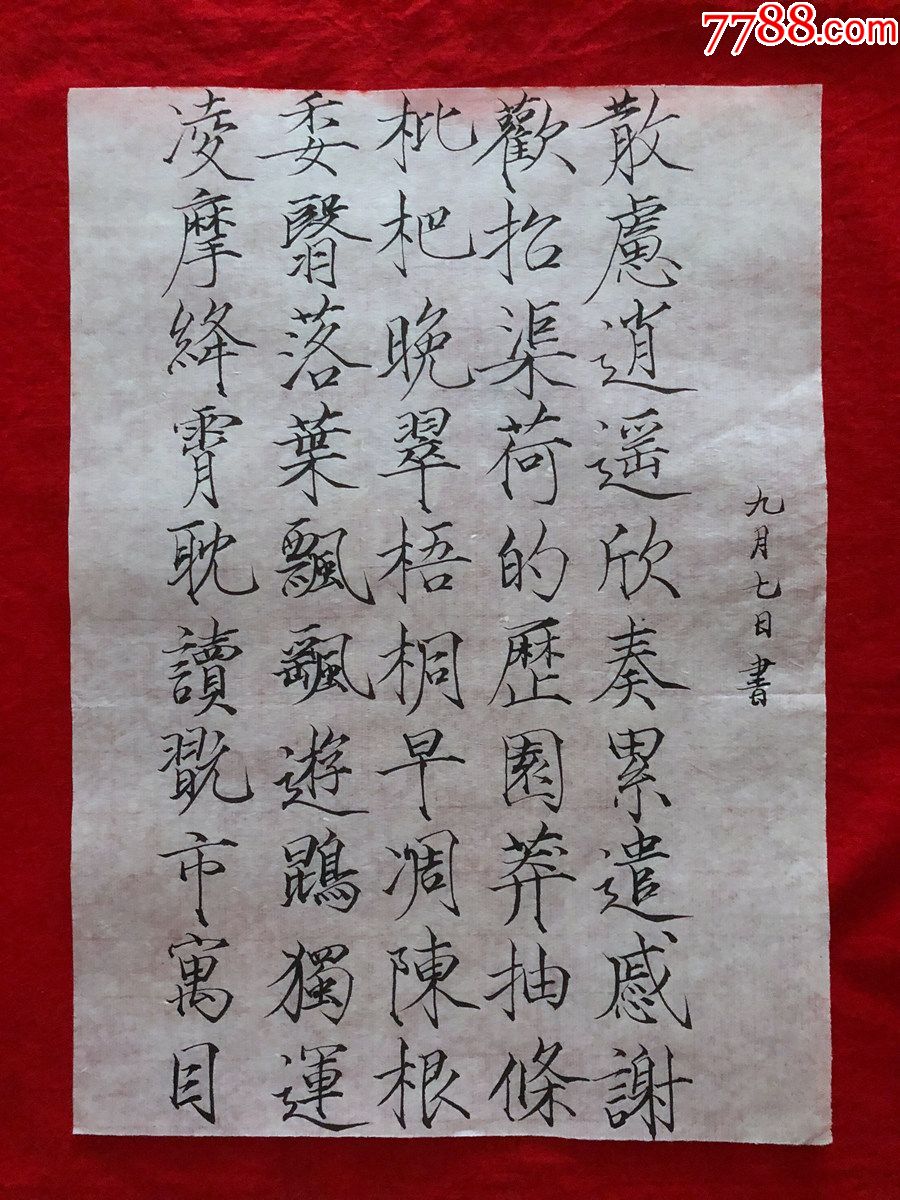 7788.com
九月七日書
散慮逍遥欣奏累遣慼謝
歡招渠荷的歷園莽抽條
枇杷晚翠梧桐早凋陳根
委翳落葉飄飖遊鵾獨運
凌摩絳霄耽讀翫市寓目